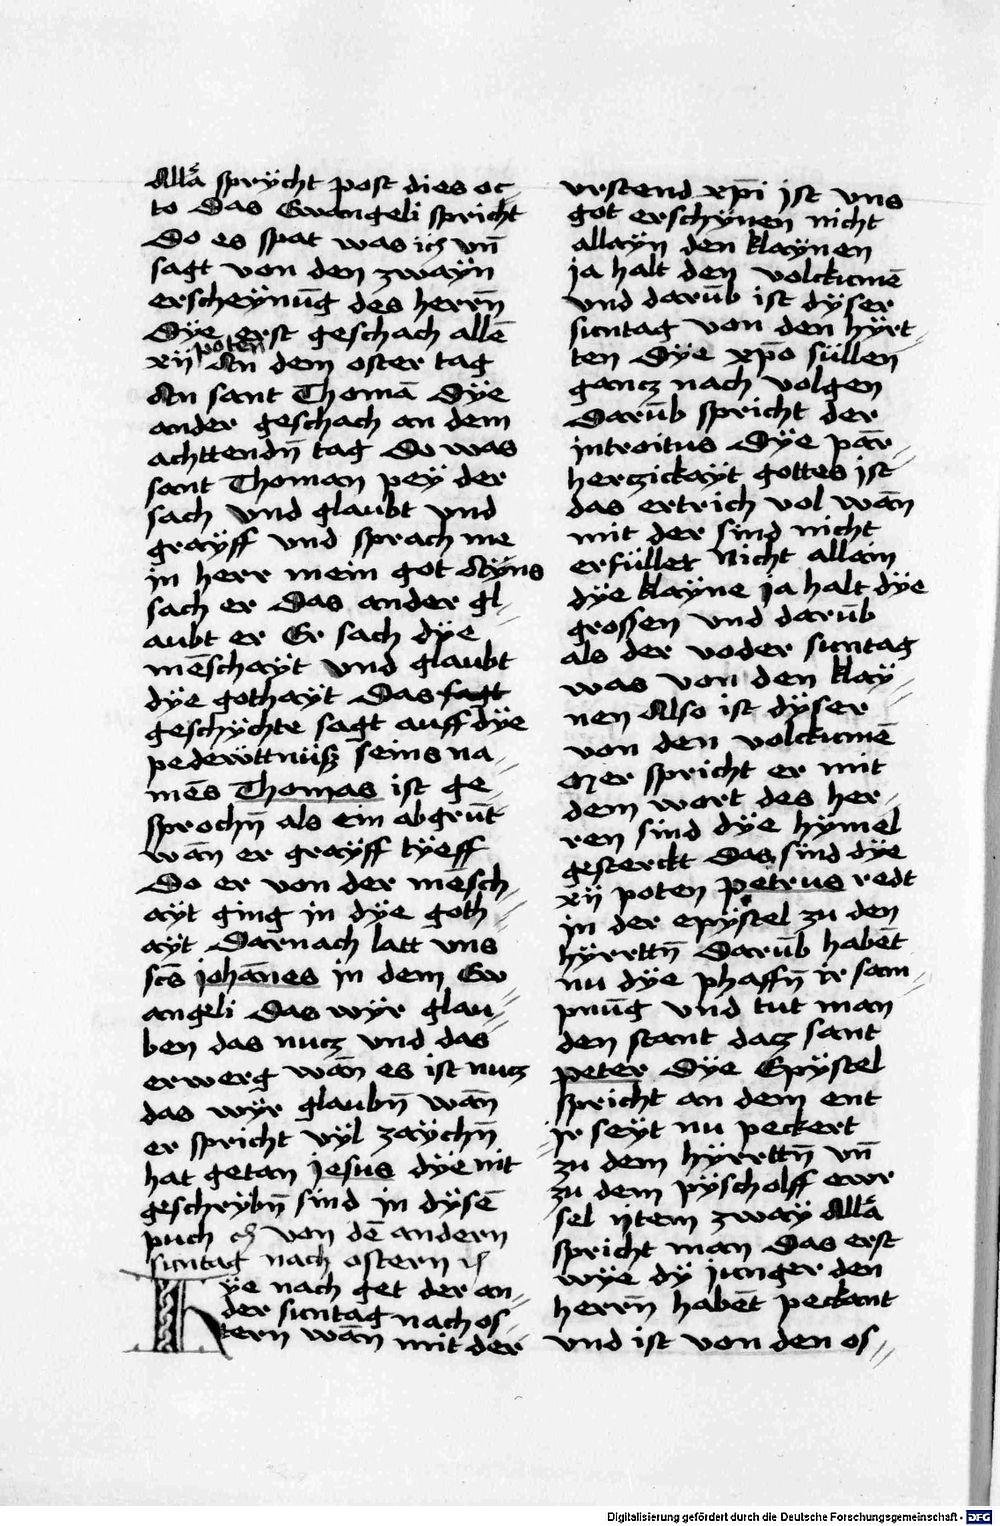 Allā sprÿcht post dies oc-
to Das Ewangeli spricht
Do es spat was ꝛc vn̄
sagt von den zwaÿn
erscheÿnūg des herrn̄
Dÿe erst geschach allē
xij poten An dem oster tag
An sant Thomā Dÿe
ander geschach an dem
achttendn̄ tag Do was
sant Thoman peÿ der
sach vnd glaubt vnd
graÿff vnd sprach me
in herr mein got Aÿns
sach er Das ander gl-
aubt er Er sach dÿe
mēschaÿt vnd glaubt
dÿe gothaÿt Das sagt
geschÿchte sagt auff dÿe
pedewttnüß seins na-
mēs Thomas ist ge-
sprochn̄ als ein abgrūt
wān er graÿff tÿeff
Do er von der mēsch-
aÿt ging in dÿe goth-
aÿt Darnach latt vns
scs̄ johānes in dem Ew-
angeli Das wÿr glau-
ben das nucz vnd das
erwerg wān es ist nucz
das wÿr glaubn̄ wān
er spricht vÿl zaÿchn̄
hat getan jesus dÿe nit
geschrÿbn̄ sind in dÿsē
puch von dē andern
suntag nach ostern
ÿe nach get der an-
der suntag nach os-
tern wān mit der
vrstend xp̄i ist vns
got erschÿnen nicht
allaÿn den klaÿnen
ja halt den volckumē
vnd darūb ist dÿser
suntag von den hÿrt-
ten Dÿe xp̄o süllen
gancz nach volgen
Darūb spricht der
introitus Dÿe pār-
herczickaÿt gottes ist
das ertrich vol wān
mit der sind nicht
erfüllet Nicht allain
dÿe klaÿne ja halt dÿe
grossen vnd darūb
als der voder suntag
was von den klaÿ-
nen Also ist dÿser
von den volckumē
Mer spricht er mit
dem wort des her-
ren sind dÿe hÿmel
gesterckt Das sind dÿe
xij poten petrus redt
in der epÿstel zu den
hÿrttn̄ Darūb habēt
nu dÿe phaffn̄ ir sam-
pnūg vnd tut man
den stant dacz sant
peter Dÿe Epÿstel
spricht an dem ent
Ir seÿt nu peckert
zu dem hÿrttn̄ vn̄
zu dem pÿscholff ewr
sel ijtem zwaÿ Allā
spricht man Das erst
wÿe dÿ junger den
herrn̄ habēt peckant
vnd ist von den os-